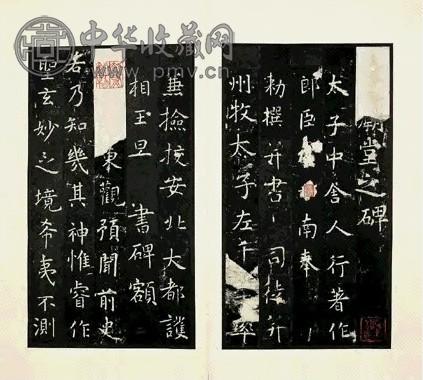 中华收藏网
www.pmv.cn
廟堂之碑
太子中舍人行著作
郎臣 南奉
勑撰并書 司徒并
州牧太子左千 率
兼撿挍安北大都護
相王旦 書碑額
東觀預聞前史
若乃知幾其神惟睿作
聖玄妙之境希夷不測